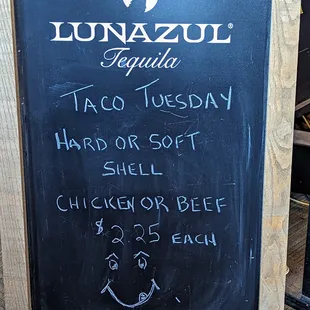 LUNAZUL®
Tequila
TACO TUESDAY
HARD OR SOFT
SHELL
CHICKEN OR BEEF
$2.25 EACH